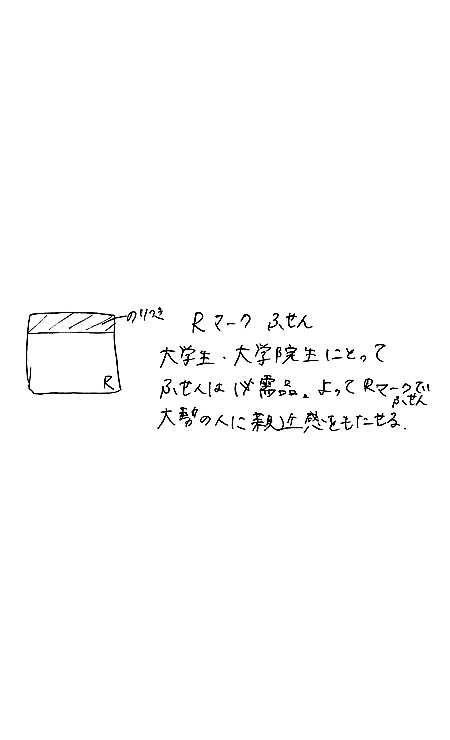 のりつき
Rマーク ふせん
大学生、大学院生にとって
ふせんは必需品。よってRマーク
ふせん
大勢の人に親近感をもたせる.
R